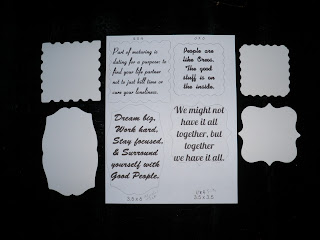 4 x 4
4 x 4
Part of maturing is
dating for a purpose: to
find your life partner
not to just kill time or
cure your loneliness.
People are
like Oreos,
The good
stuff is on
the inside.
Dream big,
Work hard,
Stay focused,
& Surround
yourself with
Good People.
We might not
have it all
together, but
together
we have it all.
3.5 x 5
3.5 x 3.5